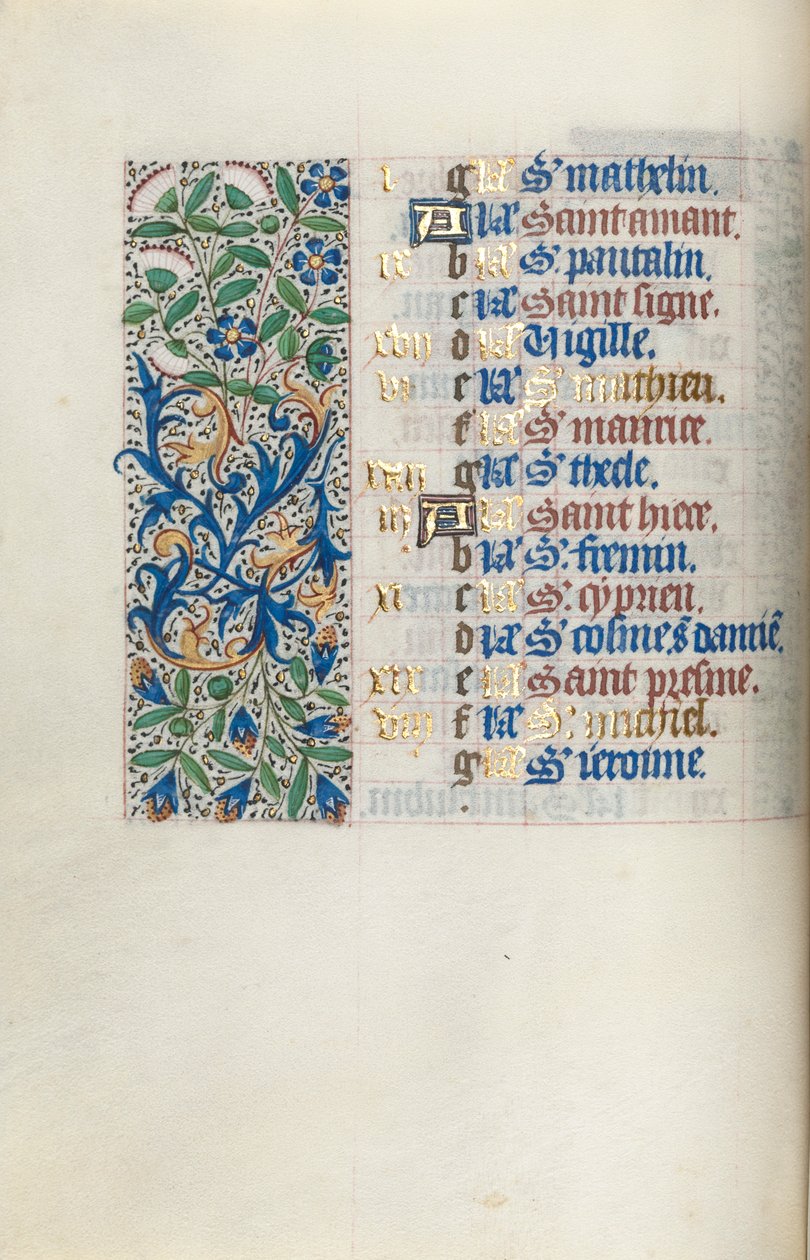 i g kł S' mathelin.
A kł Saint amant.
ix b kł S'. pantalin.
c kł Saint signe.
xvii d kł Vigille.
vi e kł S' mathieu.
f kł S' maurice.
g kł S' thecle.
iii A kł Saint hiere.
b kł S'. fremin.
xi c kł S'. cyprien.
d kł S' cosme s damiē.
xix e kł Saint presme.
viii f kł S'. michiel.
g kł S' ieronime.